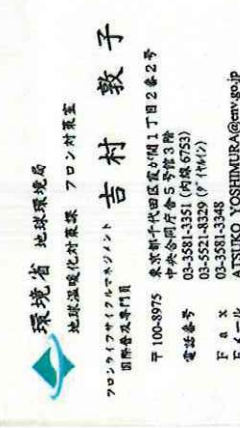 環境省 地球環境局
地球温暖化対策課 フロン対策室
フロンライフサイクルマネジメント
国際普及専門員
吉村 敦子
〒100-8975 東京都千代田区霞が関1丁目2番2号
中央合同庁舎5号館3階
電話番号 03-3581-3351 (内線 6753)
03-5521-8329 (ダイヤルイン)
Fax 03-3581-3348
Eメール ATSUKO_YOSHIMURA@env.go.jp